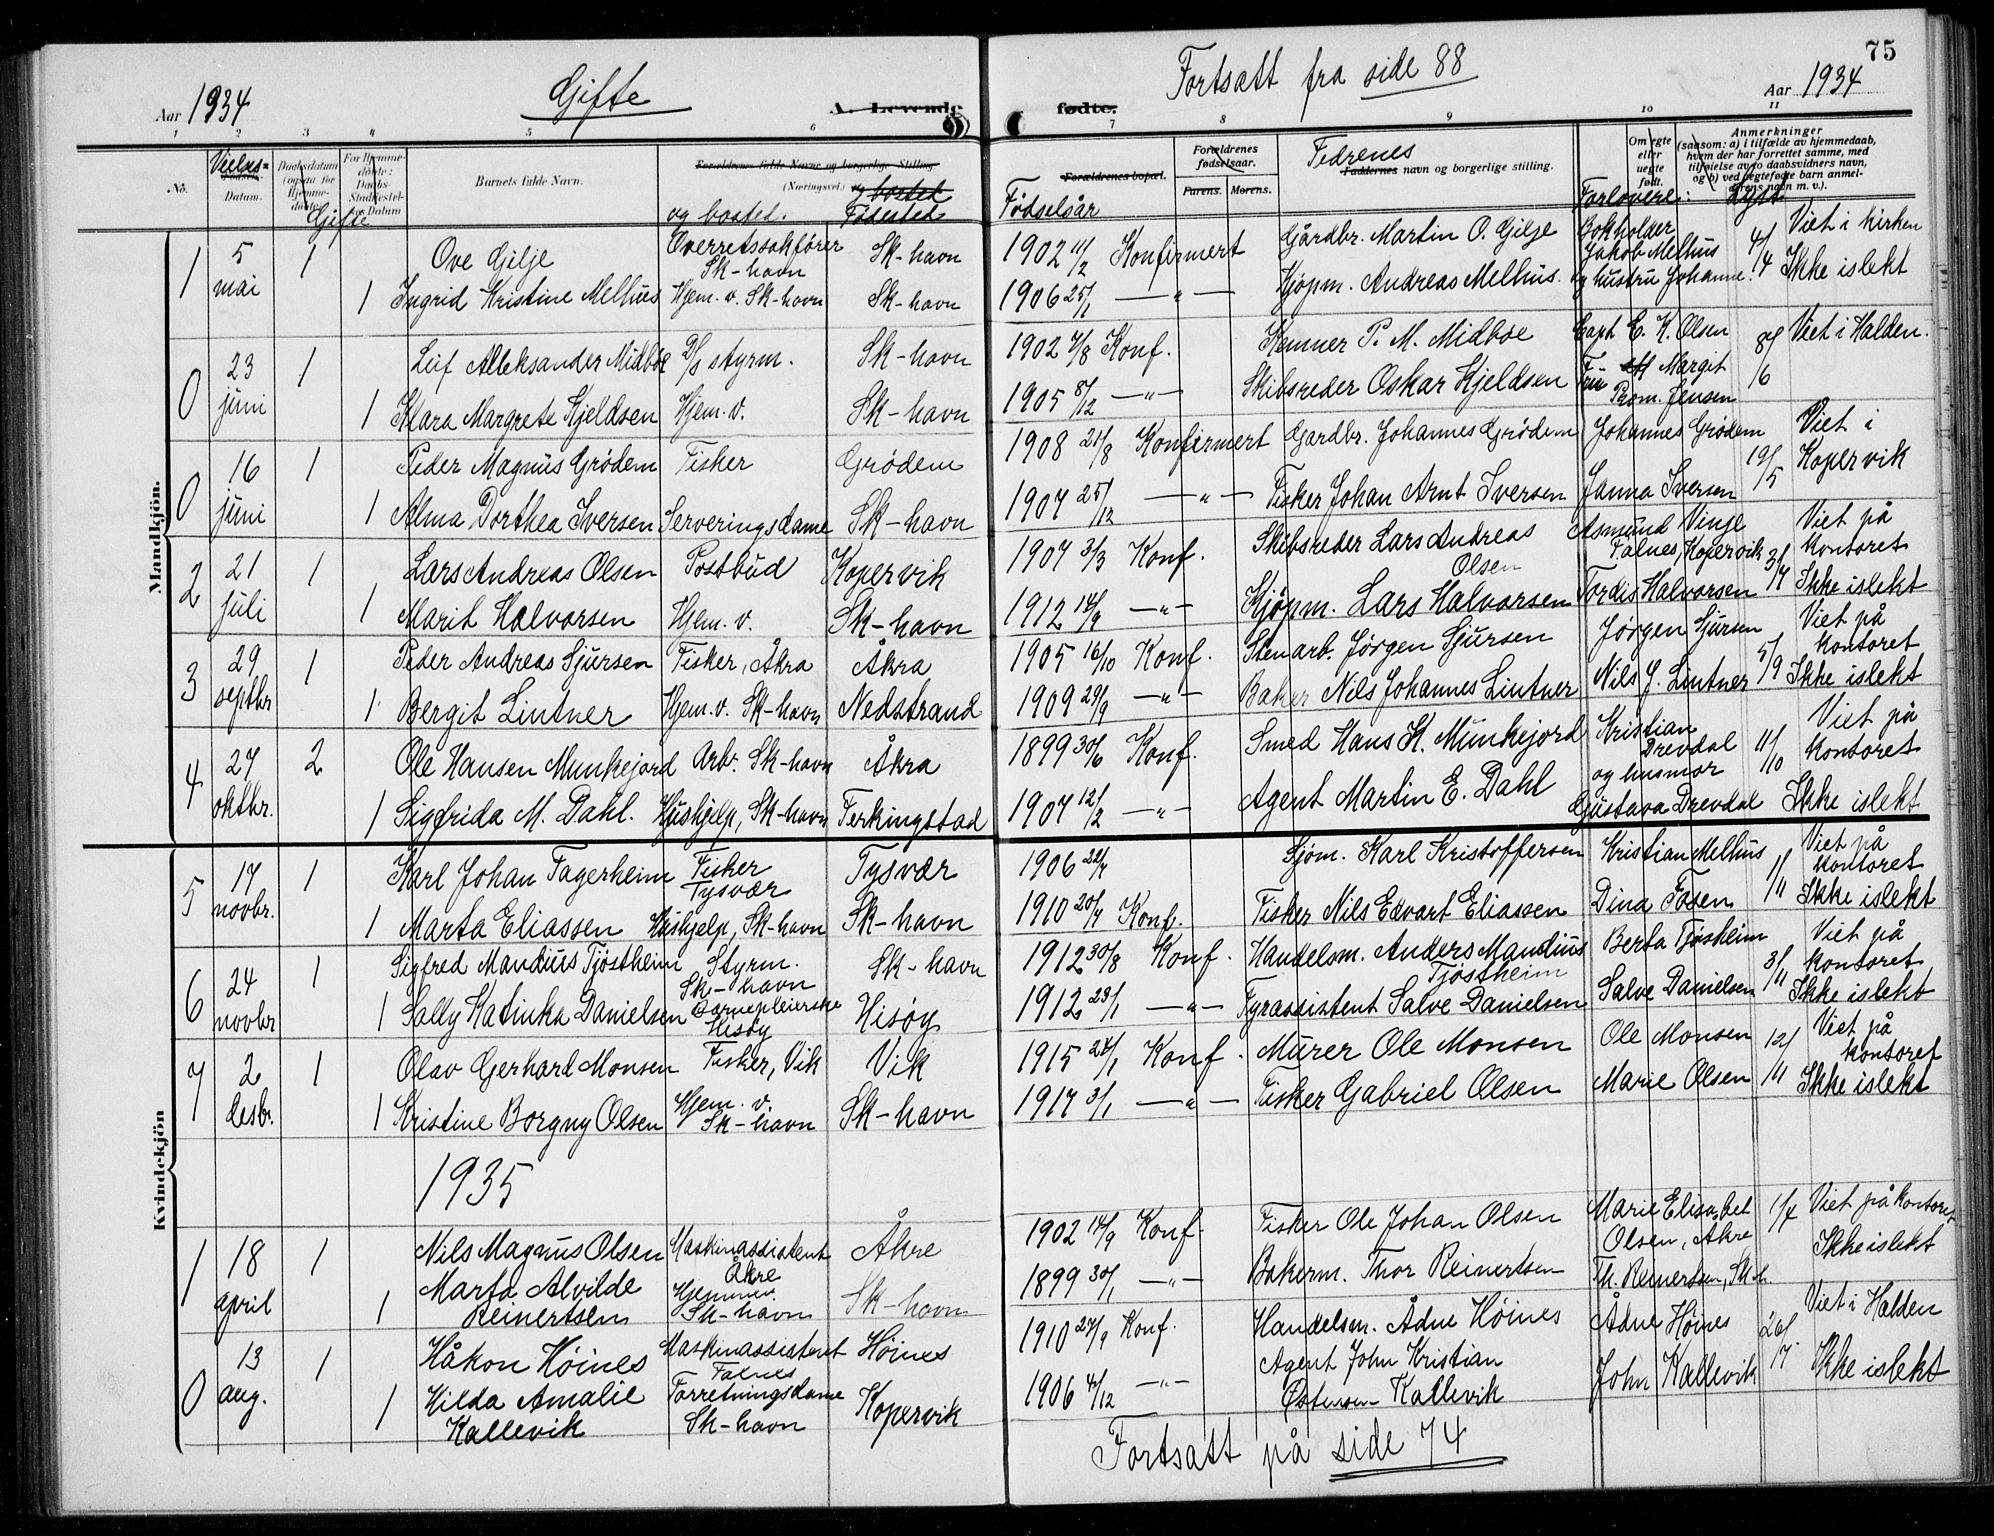 Aar 1934 Gifte A. Levende fødte. Fortsatt fra side 88 Aar 1934 75
1 2 3 4 5 6 7 8 9 10 11
No. Vielses- Datum. Daabsdatum (ogsaa for Hjemme-døbte). For Hjemme-døbte: Daabs- Stadfæstel-ses Datum Barnets fulde Navn. Forældrenes fulde Navne og borgerlige Stilling (Næringsvei) og bosted Forældrenes bopæl. Forældrenes fødselsaar. Farens. Morens. Fedrenes Faddernes navn og borgerlige stilling. Om egte eller uegte født. Anmerkninger (saasom: a) i tilfælde av hjemmedaab, hvem der har forrettet samme, med tilføielse av to daabsvidners navn, og b) ved uegtefødte barn anmelderens navn m. v.).
Gifte og bosted. Fødested Fødselsår Forlovere: Lyst
Mandkjön.
1 5 mai 1 Ove Gilje Overretssakfører Sk-havn Sk-havn 1902 11/2 Konfirmert Gårdbr. Martin O. Gilje Bokholder Jakob Melhus 4/4 Viet i kirken
1 Ingrid Kristine Melhus Hjem. v. Sk-havn Sk-havn 1906 25/1 —"— Kjøpm. Andreas Melhus. og hustru Johanne. Ikke i slekt
0 23 juni 1 Leif Alleksander Midbøe D/S styrm. Sk-havn 1902 4/8 Konf. Kemner P. M. Midbøe Capt E. K. Olsen 8/6 Viet i Halden.
1 Klara Margrete Kjeldsen Hjem. v. Sk-havn 1905 8/12 —"— Skibsreder Oskar Kjeldsen Fru Margit Prom. Jensen
0 16 juni 1 Peder Magnus Grødem Fisker Grødem 1908 21/8 Konfirmert Gardbr. Johannes Grødem Johannes Grødem 19/5 Viet i Kopervik
1 Alma Dorthea Iversen Serveringsdame Sk-havn 1907 25/12 —"— Fisker Johan Arnt Iversen Janna Iversen
2 21 juli 1 Lars Andreas Olsen Postbud Kopervik 1907 3/3 Konf. Skibsreder Lars Andreas Olsen Asmund Vinje Falnes, Kopervik 3/7 Viet på kontoret
1 Marit Halvorsen Hjem. v. Sk-havn 1912 14/9 —"— Kjøpm. Lars Halvorsen Tordis Halvorsen Ikke i slekt
3 29 septbr 1 Peder Andreas Sjursen Fisker, Åkra Åkra 1905 16/10 Konf. Stenarb. Jørgen Sjursen Jørgen Sjursen 5/9 Viet på kontoret
1 Bergit Lintner Hjem. v. Sk-havn Nedstrand 1909 29/9 —"— Baker Nils Johannes Lintner Nils J. Lintner Ikke i slekt
4 27 oktbr. 2 Ole Hansen Munkejord Arb. Sk-havn Åkra 1899 30/6 Konf. Smed Hans K. Munkejord Kristian Drevdal 11/10 Viet på kontoret
1 Sigfrida M. Dahl. Hushjelp, Sk-havn Ferkingstad 1907 12/2 —"— Agent Martin E. Dahl og husmor Gustava Drevdal Ikke i slekt
Kvindekjön
5 17 novbr. 1 Karl Johan Fagerheim Fisker Tysvær Tysvær 1906 22/7 Sjöm. Karl Kristoffersen Kristian Melhus 1/11 Viet på kontoret
1 Marta Eliassen Hushjelp, Sk-havn Sk-havn 1910 20/7 Konf. Fisker Nils Edvart Eliassen Dina Fosen Ikke i slekt
6 24 novbr 1 Sigfred Mandius Tjöstheim Styrm. Sk-havn Sk-havn 1912 30/8 Konf. Handelsm. Anders Mandius Tjöstheim Berta Tjösheim 3/11 Viet på kontoret
1 Sally Katinka Danielsen Barnepleierske Hisöy Hisöy 1912 23/1 —"— Fyrassistent Salve Danielsen Salve Danielsen Ikke i slekt
7 2 desbr. 1 Olav Gerhard Monsen Fisker, Vik Vik 1915 22/1 Konf. Murer Ole Monsen Ole Monsen 12/11 Viet på kontoret
1 Kristine Borgny Olsen Hjem. v. Sk-havn Sk-havn 1917 3/1 —"— Fisker Gabriel Olsen Marie Olsen Ikke i slekt
1935
1 18 april 1 Nils Magnus Olsen Maskinassistent Åkre Åkre 1902 14/9 Konf Fisker Ole Johan Olsen Marie Elisabet Olsen, Åkre 1/4 Viet på kontoret
1 Marta Alvilde Reinertsen Hjemmev. Sk-havn Sk-havn 1899 30/1 —"— Bakerm. Thor Reinertsen Th. Reinertsen, Sk-h. Ikke i slekt
0 13 aug. 1 Håkon Höines Maskinassistent Falnes Höines 1910 27/9 Konf. Handelsm. Ådne Höines Ådne Höines 26/7 Viet i Halden
1 Hilda Amalie Kallevik Forretningsdame Sk-havn Kopervik 1906 4/12 —"— Agent John Kristian Østensen Kallevik John Kallevik Ikke i slekt
Fortsatt på side 74